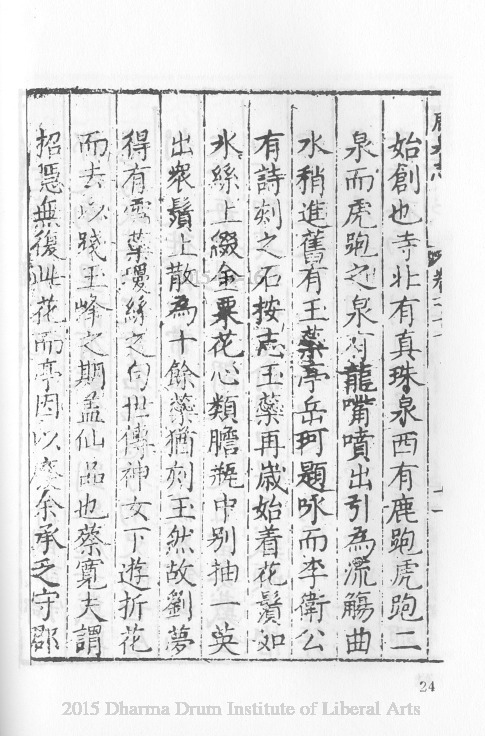 始創也寺北有真珠泉西有鹿跑虎跑二
泉而虎跑之泉有龍嘴噴出引為流觴曲
水稍進舊有王蘂亭岳珂題咏而李衛公
有詩刻之石按志玉蘂再歲始着花鬚如
氷絲上綴金粟花心類膽瓶中别抽一英
出衆鬚上散為十餘蘂猶刻玉然故劉夢
得有雪蘂瓊絲之句世傳神女下遊折花
而去以踐玉峰之期盖仙品也蔡寛夫謂
招隠無復此花而亭因以廢余承乏守郡
24
2015 Dharma Drum Institute of Liberal Arts